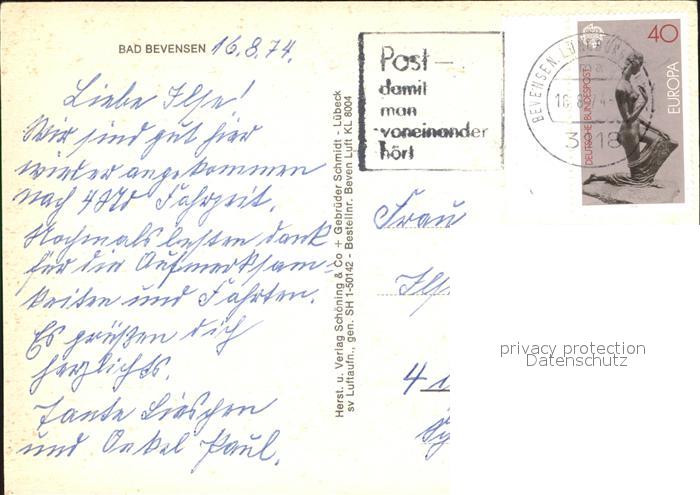 BAD BEVENSEN 16.8.74.
Liebe Ilse!
Wir sind gut hier
wieder angekommen
nach 4 Std Fahrzeit.
Nochmals besten Dank
für die Aufmerksam-
keiten und Fahrten.
Es grüßen dich
herzlichst.
Tante Lieschen
und Onkel Paul.
Herst. u. Verlag Schöning & Co + Gebrüder Schmidt - Lübeck
sv Luftaufn., gen. SH 1-50142 - Bestellnr. Beven Luft KL 8004
Post -
damit
man
voneinander
hört
BEVENSEN
3118
40
EUROPA
DEUTSCHE BUNDESPOST
Frau
4
privacy protection
Datenschutz